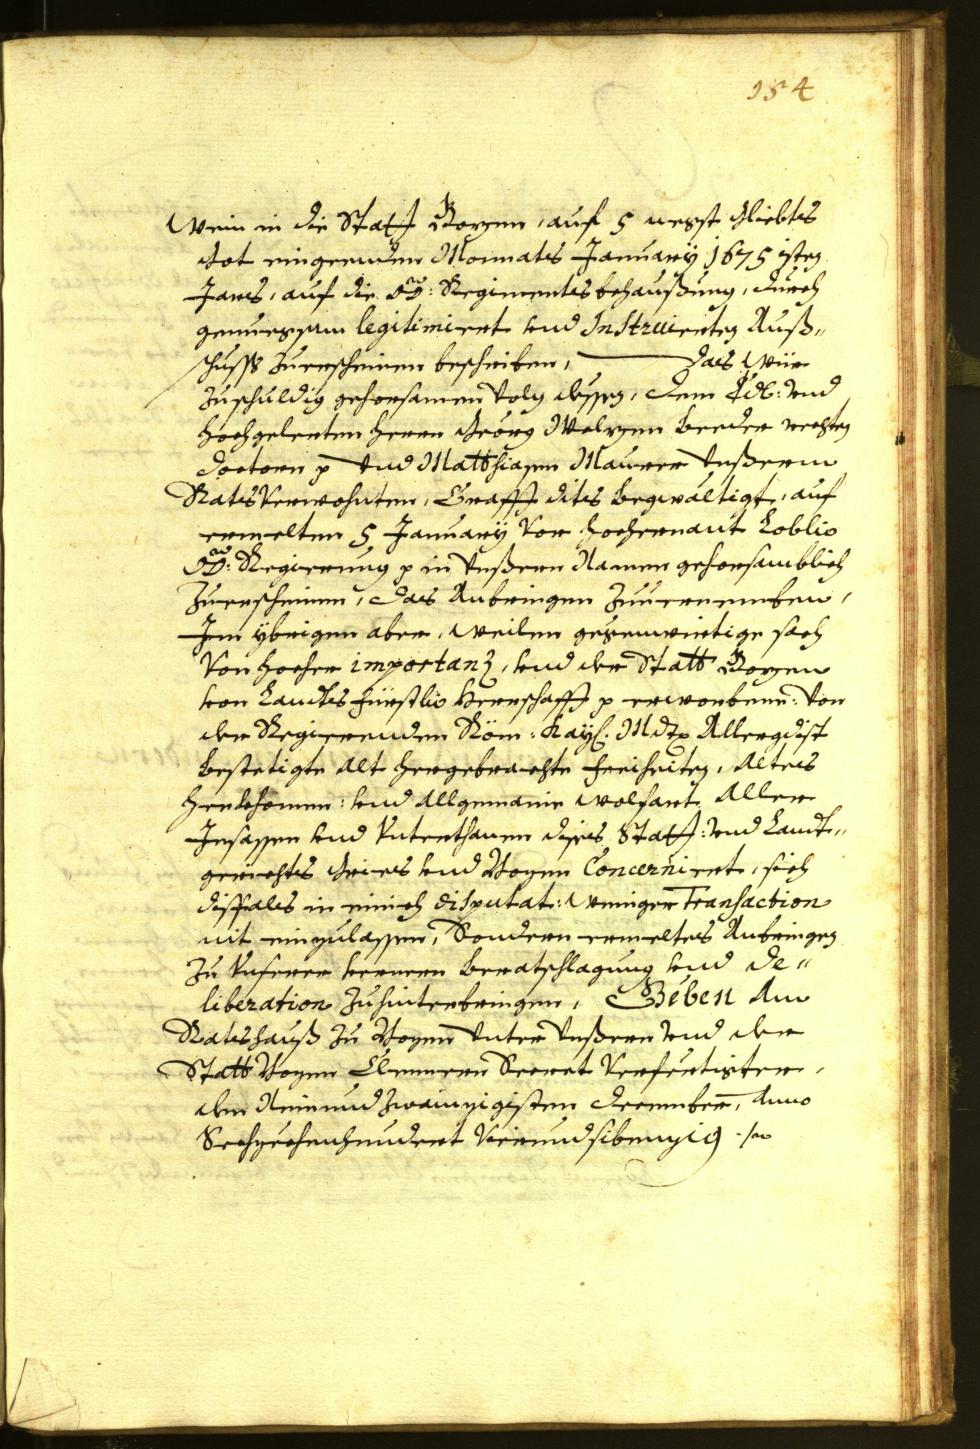 154
Wein in die Statt Bozen, auf 5 negst Gliebts
Got eingeenden Monnats January 1675 isten
Jars, auf die OÖ: Regimentsbehaußung, durch
genuegsam legitimiert und Instruierten Auß„
schuss Zuerscheinen beschriben, das Wür
Zuschuldig gehorsamen Volg dessen, dem Edl: und
hochgelerten Herrn Georg Melzen beeder rechten
doctorn p und Matthiasen Maurer Unßerm
Ratsverwohnten, Crafft dits begwältigt, auf
ermelten 5 January vor hochernant Loblio
OÖ: Regierung p in Unßern Namen gehorsamblich
Zuerscheinen, das Anbringen Zuvernemben,
Im ybrigen aber, weilen gegenwirtige sach
Von hocher importanz, und der Statt Bozen
von Landts fürstlio Herrschafft p erworbene: von
der Regierenden Röm: Kayß. Mdtp Allergdist
bestetigte alt hergebrachte freiheiten, altes
Herkhomen: und Allgemaine wolfart Aller
Insassen und Unterthanen dises Statt: und Landt„
gerichts Gries und Bozen Concerniert, sich
dissfales in einich disputat: weniger Transaction
nit einzulassen, Sondern ermeltes Anbringen
Zu Unserer ferneren beratschlagung und De„
liberation Zuhinterbringen, Geben Am
Ratshauß Zu Bozen Unter Unßern und der
Statt Bozen Clainern Secret Verfertigten,
den Neinundzwainzigisten December, Anno
Sechzechenhundert Vierundsibenzig